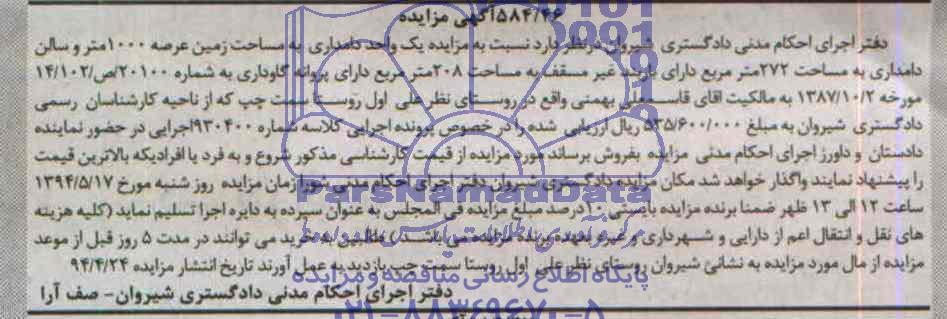 ۵۸۴/۴۶آگهی مزایده
دفتر اجرای احکام مدنی دادگستری شیروان درنظر دارد نسبت به مزایده یک واحد دامداری به مساحت زمین عرصه ۱۰۰۰متر و سالن
دامداری به مساحت ۲۷۲متر مربع دارای باربند غیر مسقف به مساحت ۲۰۸متر مربع دارای پروانه گاوداری به شماره ۲۰۱۰۰/ص/۱۴/۱۰۲
مورخه ۱۳۸۷/۱۰/۲ به مالکیت اقای بهمنی واقع در روستای نظر علی اول روستا سمت چپ که از ناحیه کارشناسان رسمی
دادگستری شیروان به مبلغ ۵۳۵/۶۰۰/۰۰۰ ریال ارزیابی شده را در خصوص پرونده اجرایی کلاسه شماره ۹۳۰۴۰۰اجرایی در حضور نماینده
دادستان و داورز اجرای احکام مدنی مزایده بفروش برساند مورد مزایده از قیمت کارشناسی مذکور شروع و به فرد یا افرادیکه بالاترین قیمت
را پیشنهاد نمایند واگذار خواهد شد مکان مزایده دادگستری شیروان دفتر اجرای احکام مدنی شورا زمان مزایده روز شنبه مورخ ۱۳۹۴/۵/۱۷
ساعت ۱۲ الی ۱۳ ظهر ضمنا برنده مزایده بایستی ۱۰درصد مبلغ مزایده فی المجلس به عنوان سپرده به دایره اجرا تسلیم نماید (کلیه هزینه
های نقل و انتقال اعم از دارایی و شهرداری و غیره بعهده برنده مزایده می باشد.) متقاضیین به خرید می توانند در مدت ۵ روز قبل از موعد
مزایده از مال مورد مزایده به نشانی شیروان روستای نظر علی اول روستا سمت چپ بازدید به عمل آورند تاریخ انتشار مزایده ۹۴/۴/۲۴
دفتر اجرای احکام مدنی دادگستری شیروان- صف آرا
ParsNamadData
پایگاه اطلاع رسانی مناقصه و مزایده
۰۲۱-۸۸۳۴۹۶۷۰-۵